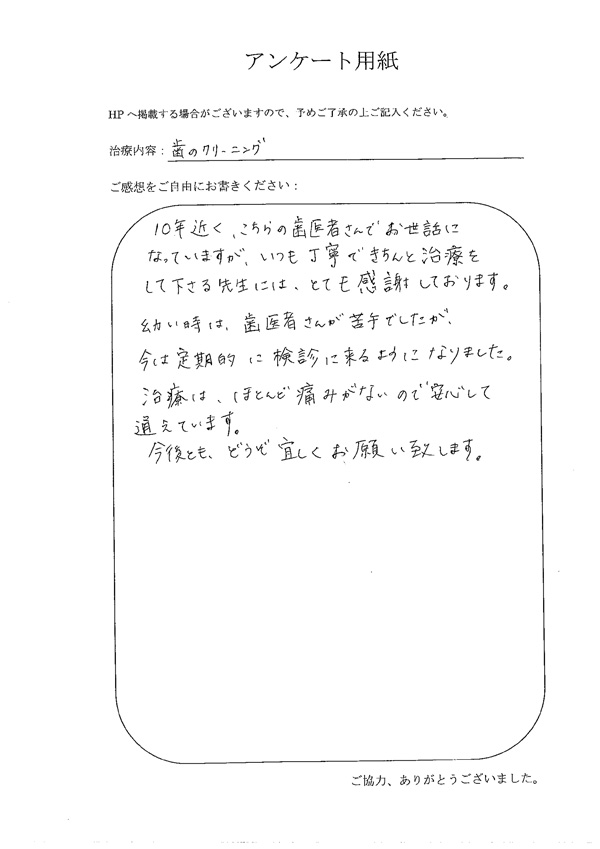 アンケート用紙
HPへ掲載する場合がございますので、予めご了承の上ご記入ください。
治療内容：歯のクリーニング
ご感想をご自由にお書きください：
10年近く、こちらの歯医者さんでお世話に
なっていますが、いつも丁寧できちんと治療を
して下さる先生には、とても感謝しております。
幼い時は、歯医者さんが苦手でしたが、
今は定期的に検診に来るようになりました。
治療は、ほとんど痛みがないので安心して
通えています。
今後とも、どうぞ宜しくお願い致します。
ご協力、ありがとうございました。